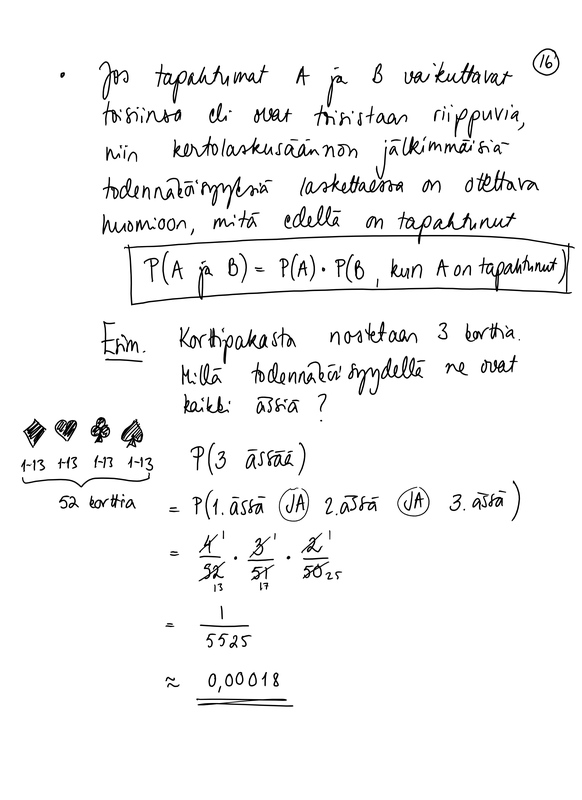 16
• Jos tapahtumat A ja B vaikuttavat
toisiinsa eli ovat toisistaan riippuvia,
niin kertolaskusäännön jälkimmäisiä
todennäköisyyksiä laskettaessa on otettava
huomioon, mitä edellä on tapahtunut
P(A ja B) = P(A) · P(B, kun A on tapahtunut)
Esim. Korttipakasta nostetaan 3 korttia.
Millä todennäköisyydellä ne ovat
kaikki ässiä?
♦ ♥ ♣ ♠
1-13 1-13 1-13 1-13
52 korttia
P(3 ässää)
= P(1. ässä JA 2. ässä JA 3. ässä)
= 4/52 · 3/51 · 2/50
1 1 1
13 17 25
= 1/5525
≈ 0,00018